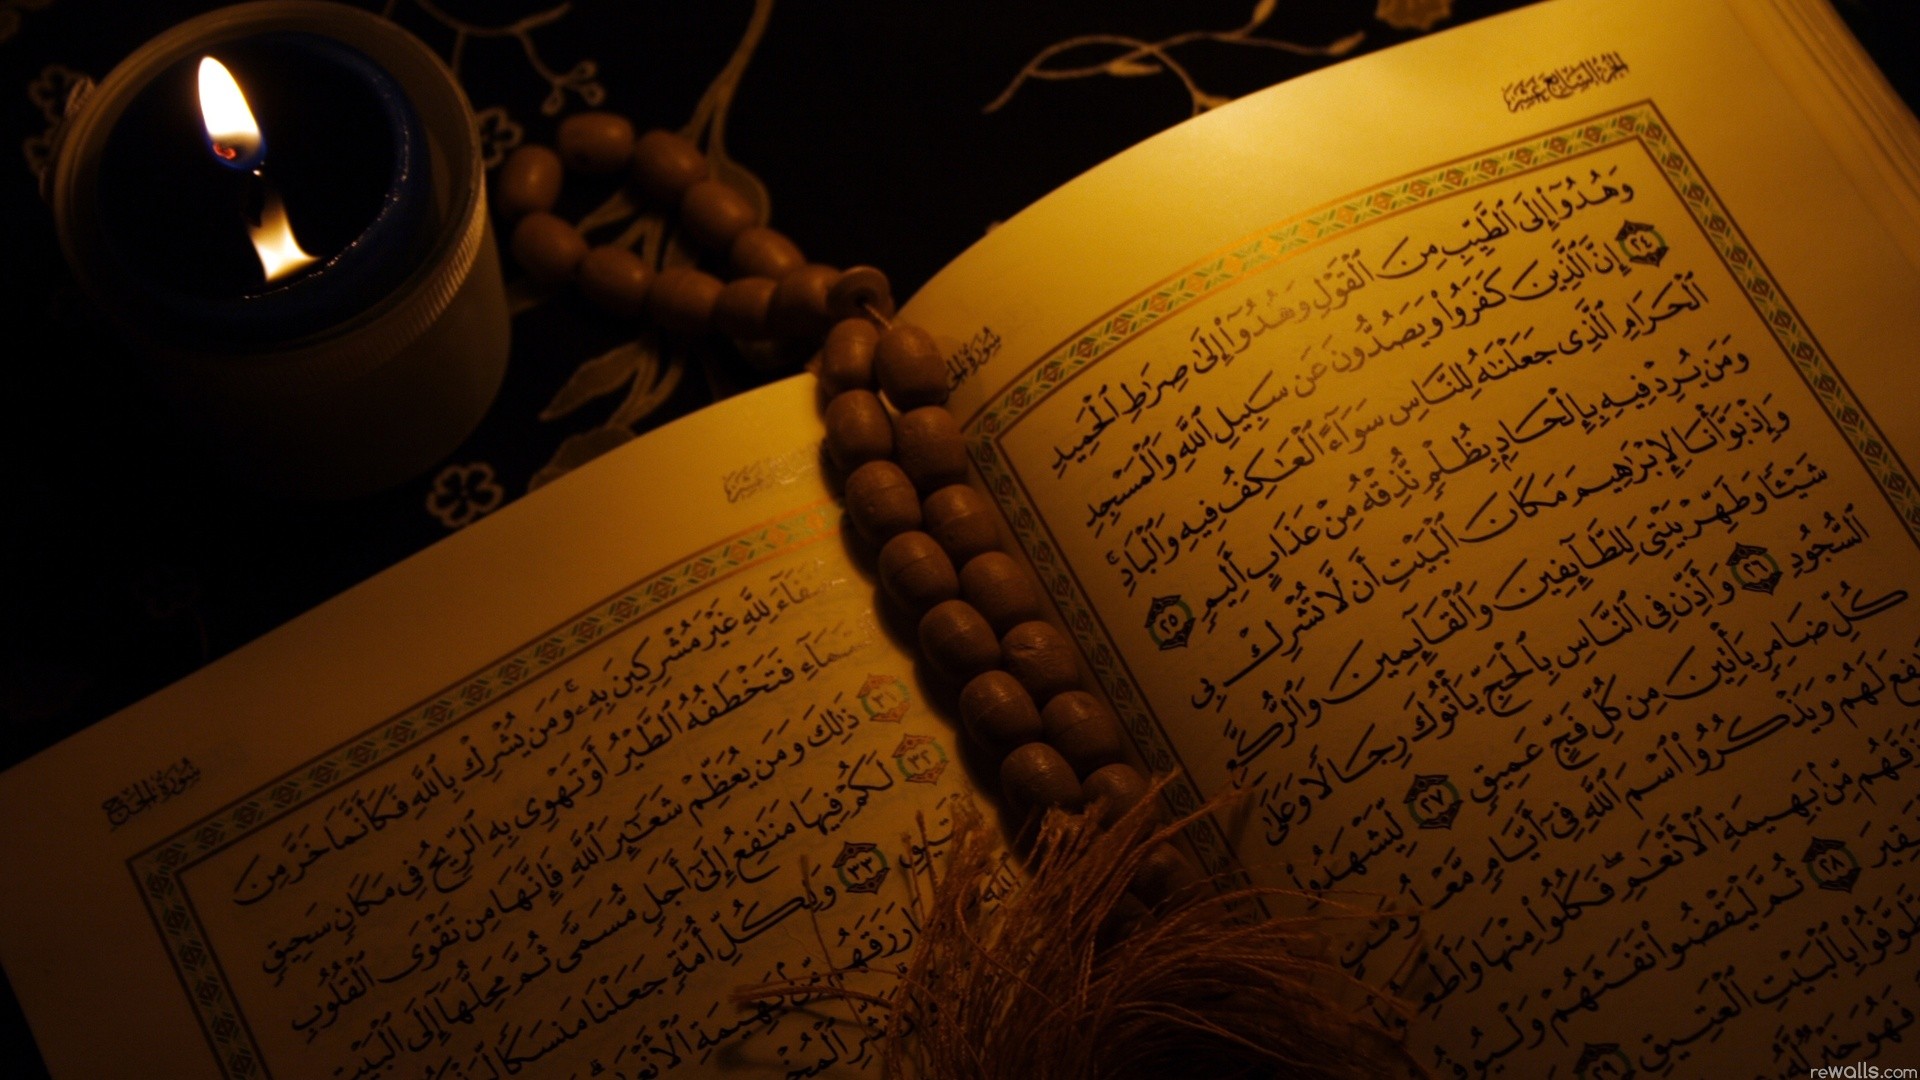 الجزء السابع عشر
سورة الحج
وَهُدُوٓا۟ إِلَى ٱلطَّيِّبِ مِنَ ٱلْقَوْلِ وَهُدُوٓا۟ إِلَىٰ صِرَٰطِ ٱلْحَمِيدِ
٢٤ إِنَّ ٱلَّذِينَ كَفَرُوا۟ وَيَصُدُّونَ عَن سَبِيلِ ٱللَّهِ وَٱلْمَسْجِدِ
ٱلْحَرَامِ ٱلَّذِى جَعَلْنَٰهُ لِلنَّاسِ سَوَآءً ٱلْعَٰكِفُ فِيهِ وَٱلْبَادِ ۚ
وَمَن يُرِدْ فِيهِ بِإِلْحَادٍۭ بِظُلْمٍ نُّذِقْهُ مِنْ عَذَابٍ أَلِيمٍ ٢٥
وَإِذْ بَوَّأْنَا لِإِبْرَٰهِيمَ مَكَانَ ٱلْبَيْتِ أَن لَّا تُشْرِكْ بِى
شَيْـًٔا وَطَهِّرْ بَيْتِىَ لِلطَّآئِفِينَ وَٱلْقَآئِمِينَ وَٱلرُّكَّعِ
ٱلسُّجُودِ ٢٦ وَأَذِّن فِى ٱلنَّاسِ بِٱلْحَجِّ يَأْتُوكَ رِجَالًا وَعَلَىٰ
كُلِّ ضَامِرٍ يَأْتِينَ مِن كُلِّ فَجٍّ عَمِيقٍ ٢٧ لِّيَشْهَدُوا۟
لَهُمْ وَيَذْكُرُوا۟ ٱسْمَ ٱللَّهِ فِىٓ أَيَّامٍ مَّعْلُومَٰتٍ
مِّنۢ بَهِيمَةِ ٱلْأَنْعَٰمِ ۖ فَكُلُوا۟ مِنْهَا وَأَطْعِمُوا۟
٢٨ ثُمَّ لْيَقْضُوا۟ تَفَثَهُمْ وَلْيُوفُوا۟
بِٱلْبَيْتِ ٱلْعَتِيقِ ٢٩
فَهُوَ خَيْرٌ لَّهُۥ
سورة الحج
لِلَّهِ غَيْرَ مُشْرِكِينَ بِهِۦ ۚ وَمَن يُشْرِكْ بِٱللَّهِ فَكَأَنَّمَا خَرَّ مِنَ
فَتَخْطَفُهُ ٱلطَّيْرُ أَوْ تَهْوِى بِهِ ٱلرِّيحُ فِى مَكَانٍ سَحِيقٍ
٣١ ذَٰلِكَ وَمَن يُعَظِّمْ شَعَٰٓئِرَ ٱللَّهِ فَإِنَّهَا مِن تَقْوَى ٱلْقُلُوبِ
٣٢ لَكُمْ فِيهَا مَنَٰفِعُ إِلَىٰٓ أَجَلٍ مُّسَمًّى ثُمَّ مَحِلُّهَآ إِلَى ٱلْبَيْتِ
٣٣ وَلِكُلِّ أُمَّةٍ جَعَلْنَا مَنسَكًا
رَزَقَهُم مِّنۢ بَهِيمَةِ ٱلْأَنْعَٰمِ
rewalls.com